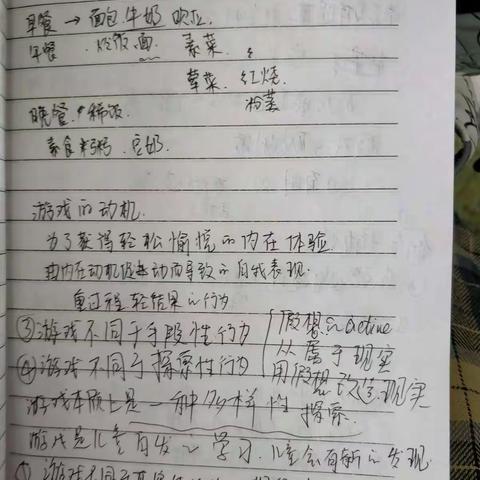 早餐 → 面包.牛奶
午餐 . 炒饭.面 素菜
荤菜. 红烧.
粉蒸
晚餐. 稀饭.
素食 粥 豆奶.
游戏的动机.
为了获得轻松愉悦的内在体验
由内在动机促 动而导致的自我表现.
重过程轻结果的行为
③游戏不同于手段性行为
假想 active
④游戏不同于探索性行为
从属于现实
用假想 改造现实
游戏本质上是一种多样性 探索.
游戏是儿童自发的学习.儿童会有新的发现.
① 游戏不同于